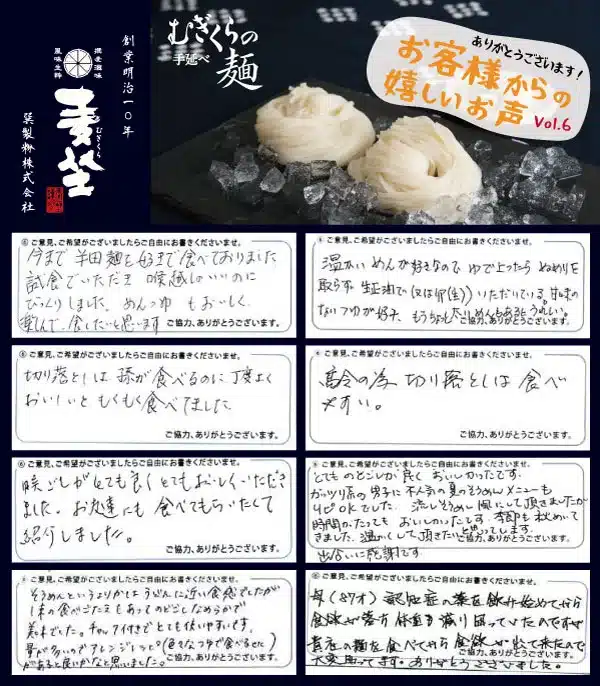 創業明治一〇年
撰麦滋味
風味生粋
むぎくら
麦坐
製粉株式会社
むぎくらの
手延べ
麺
ありがとうございます!
お客様からの
嬉しいお声
Vol.6
ご意見、ご希望がございましたらご自由にお書きくださいませ。
今まで 半田麺を好きで食べておりました
試食でいただき 喉越しのいいのに
びっくりしました。めんつゆ もおいしく、
楽しんで、食したいと思います
ご協力、ありがとうございます。
ご意見、ご希望がございましたらご自由にお書きくださいませ。
温かいめんが好きなので ゆで上ったら ぬめりを
取らず 生正油で(又は卵(生)) いただいている。甘まの
ないつゆが好き、もうちょっと太いめんもあるとうれしい。
ご協力、ありがとうございます。
ご意見、ご希望がございましたらご自由にお書きくださいませ。
切り落としは 孫が 食べるのに 丁度よく
おいしいと もくもく食べてました
ご協力、ありがとうございます。
ご意見、ご希望がございましたらご自由にお書きくださいませ。
高令の為 切り落としは 食べ
やすい。
ご協力、ありがとうございます。
ご意見、ご希望がございましたらご自由にお書きくださいませ。
喉ごしがとても良くとてもおいしくいただき
ました。お友達にも 食べてもらいたくて
紹介しました。
ご協力、ありがとうございます。
ご意見、ご希望がございましたらご自由にお書きくださいませ。
とても のどごしが良く おいしかったです。
ガッツリ系の男子に不人気の夏のそうめんメニューも
リピOKでした。流しそうめん風にして頂きましたが
時間がたっても おいしかったです。季節も秋めいて
きました。温かくして頂きたいと思ってします。
出会いに感謝です。
ご協力、ありがとうございます。
ご意見、ご希望がございましたらご自由にお書きくださいませ。
そうめんというよりかは うどんに近い食感でしたが
1本の食べごたえもあってのどごしなめらかで
美味でした。チャック付きでとても使いやすいです。
量が多いのでアレンジレシピ(色々なつゆで食べるなど)
があると良いかなと思いました。
ご協力、ありがとうございます。
ご意見、ご希望がございましたらご自由にお書きくださいませ。
母(87才) 認知症の薬を飲み始めてから
食欲が落ち 体重も減り困っていたのですが
貴店の麺を食べてから 食欲が出て来たので
大変助ってます。ありがとうございました。